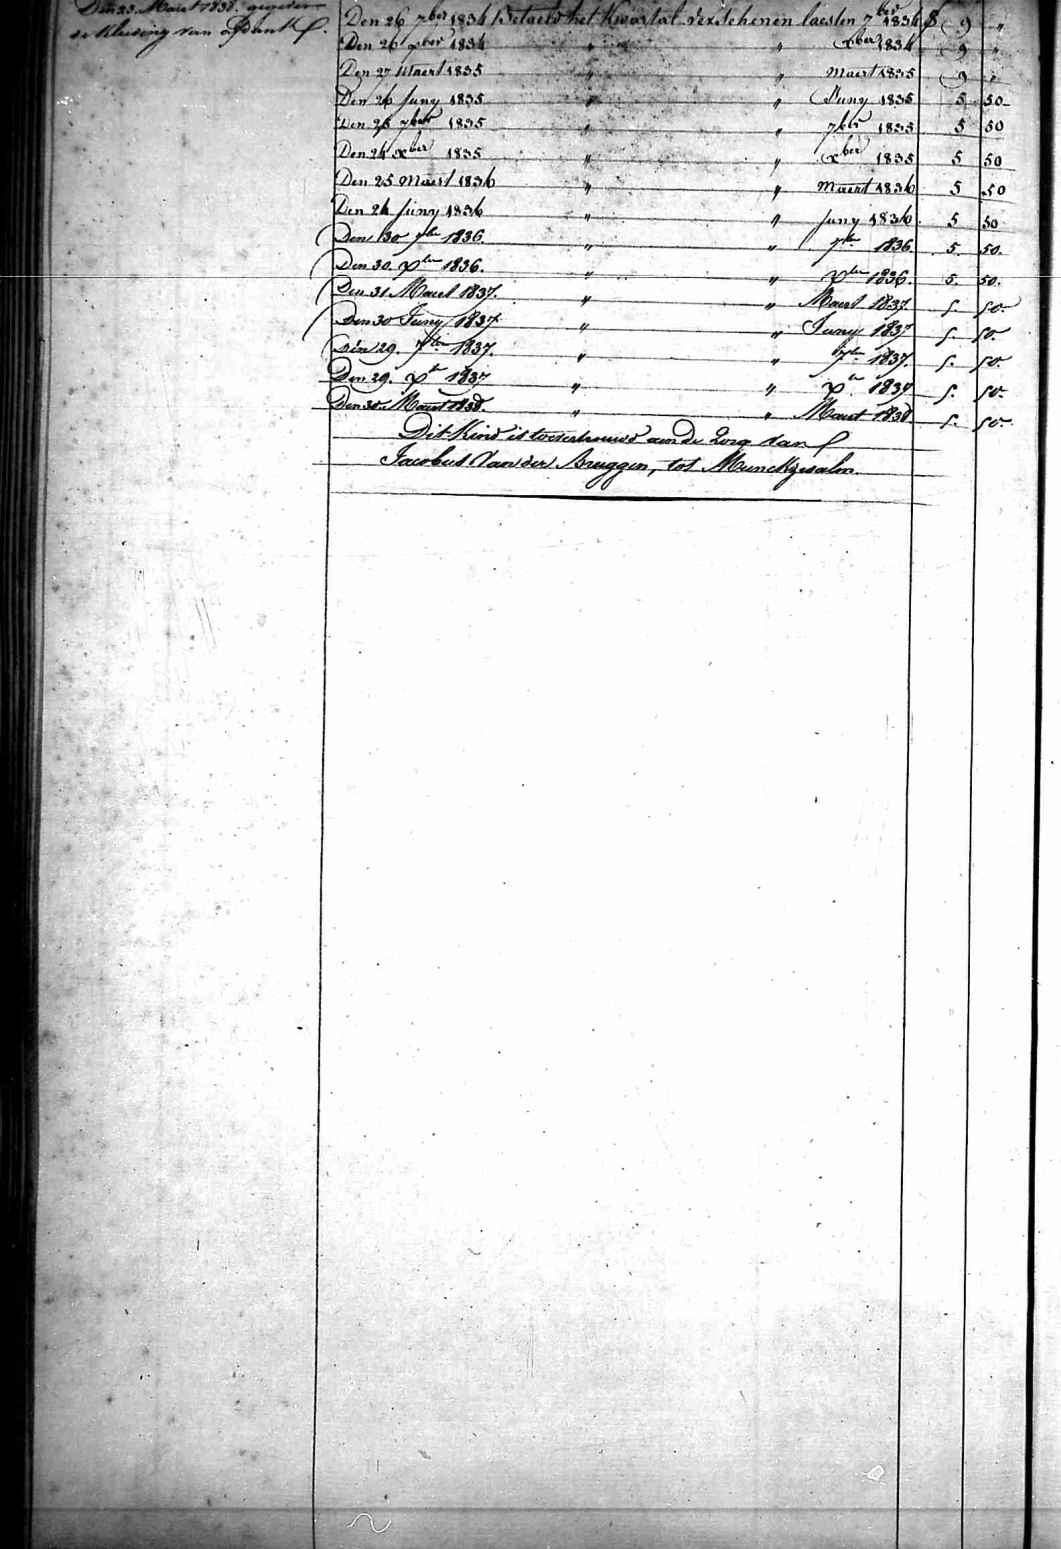 Den 23 Maert 1838. geworden
de kleeding van
Den 26 7ber 1834 Betaeld het Kwartal verschenen laesten 7ber 1834 f 9 "
Den 26 xber 1834 " " xber 1834 9 "
Den 27 Maert 1835 " " Maert 1835 9 "
Den 26 Juny 1835 " " Juny 1835 5 50
Den 25 7ber 1835 " " 7ber 1835 5 50
Den 24 xber 1835 " " xber 1835 5 50
Den 25 Maert 1836 " " Maert 1836 5 50
Den 24 Juny 1836 " " Juny 1836 5 50
Den 30 7ber 1836 " " 7ber 1836. 5. 50.
Den 30. xber 1836. " " xber 1836. 5. 50.
Den 31 Maert 1837. " " Maert 1837. 5. 50.
Den 30 Juny 1837. " " Juny 1837 5. 50.
Den 29. 7ber 1837. " " 7ber 1837. 5. 50.
Den 29. xber 1837 " " xber 1837 5. 50.
Den 30. Maert 1838. " " Maert 1838 5. 50.
Dit Kind is toevertrouwd aen de Zorg van
Jacobus Van der Bruggen, tot Munckzwalm.